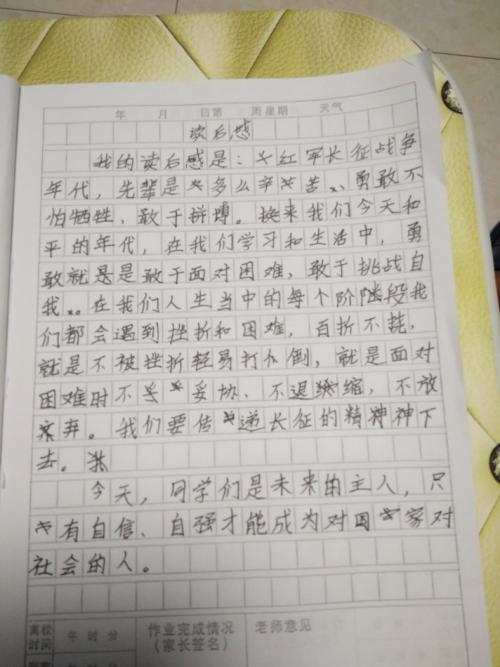 年 月 日第 周星期 天气
读后感
我的读后感是:红军长征战争
年代,先辈是多么辛苦、勇敢不
怕牺牲、敢于拼搏。换来我们今天和
平的年代,在我们学习和生活中,勇
敢就是是敢于面对困难,敢于挑战自
我。在我们人生当中的每个阶段我
们都会遇到挫折和困难,百折不挠,
就是不被挫折轻易打倒,就是面对
困难时不妥协、不退缩,不放
弃。我们要传递长征的精神神下
去。
今天,同学们是未来的主人,只
有自信、自强才能成为对国家对
社会的人。
离校
时间
年 时 分
作业完成情况
(家长签名)
老师意见